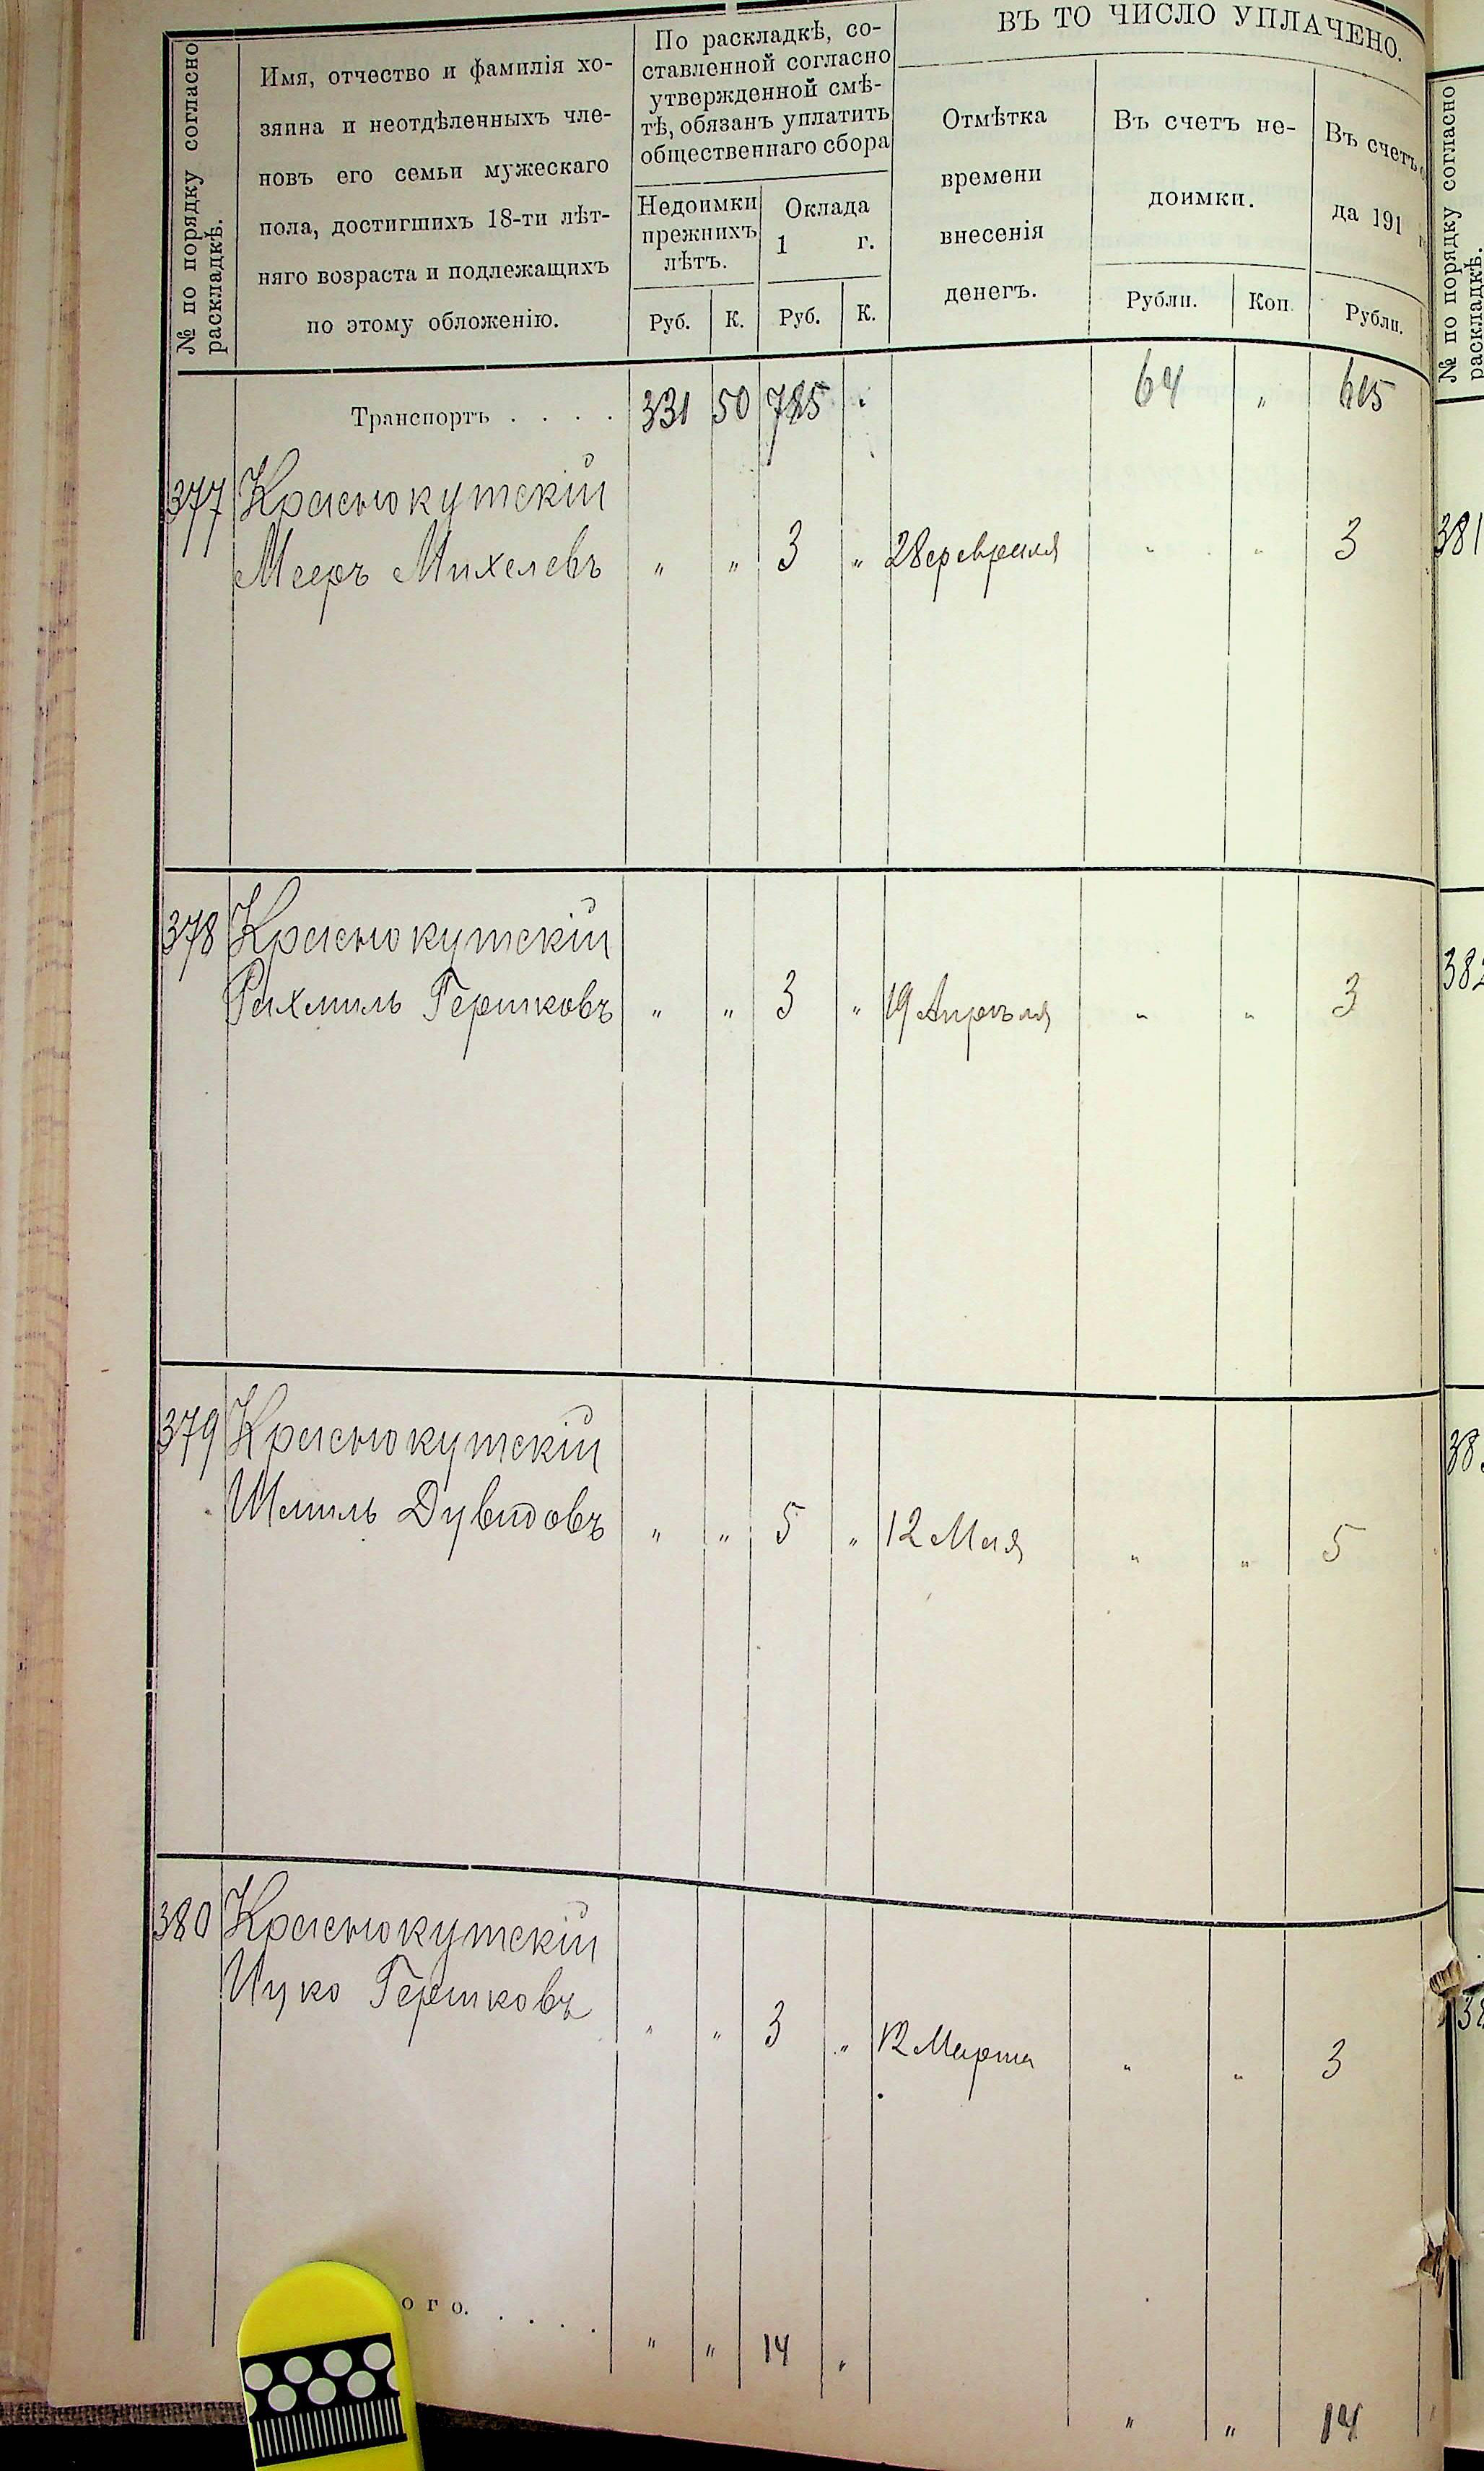 № по порядку согласно
раскладкѣ.
Имя, отчество и фамилія хо-
зяина и неотдѣленныхъ чле-
новъ его семьи мужескаго
пола, достигшихъ 18-ти лѣт-
няго возраста и подлежащихъ
по этому обложенію.
По раскладкѣ, со-
ставленной согласно
утвержденной смѣ-
тѣ, обязанъ уплатить
общественнаго сбора
Недоимки
прежнихъ
лѣтъ.
Оклада
1 г.
Руб. К. Руб. К.
ВЪ ТО ЧИСЛО УПЛАЧЕНО.
Отмѣтка
времени
внесенія
денегъ.
Въ счетъ не-
доимки.
Рубли. Коп.
Въ счетъ
да 191
Рубли.
Транспортъ . . . . 331 50 725 64 " 615
377 Краснокутскій
Мееръ Михелевъ " " 3 " 28 февраля " " 3
378 Краснокутскій
Рахмиль Гершковъ " " 3 " 19 Апрѣля " " 3
379 Краснокутскій
Шмиль Дувидовъ " " 5 " 12 Мая " " 5
380 Краснокутскій
Ицко Гершковъ " " 3 " 12 Марта " " 3
ого. . . . . " " 14 " " " 14
№ по порядку согласно
раскладкѣ.
381
382
38